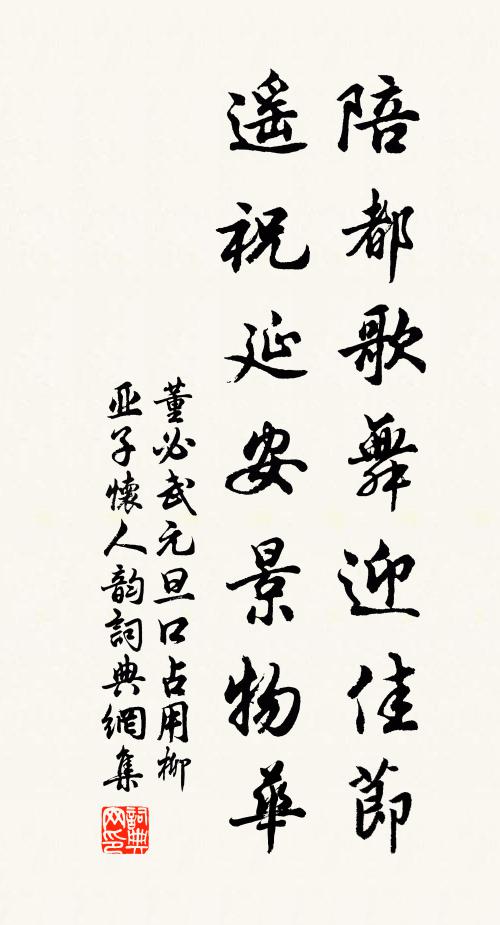 陪都歌舞迎佳節
遥祝延安景物華
董必武元旦口占用柳
亚子懷人韵詞典網集
詞典網印